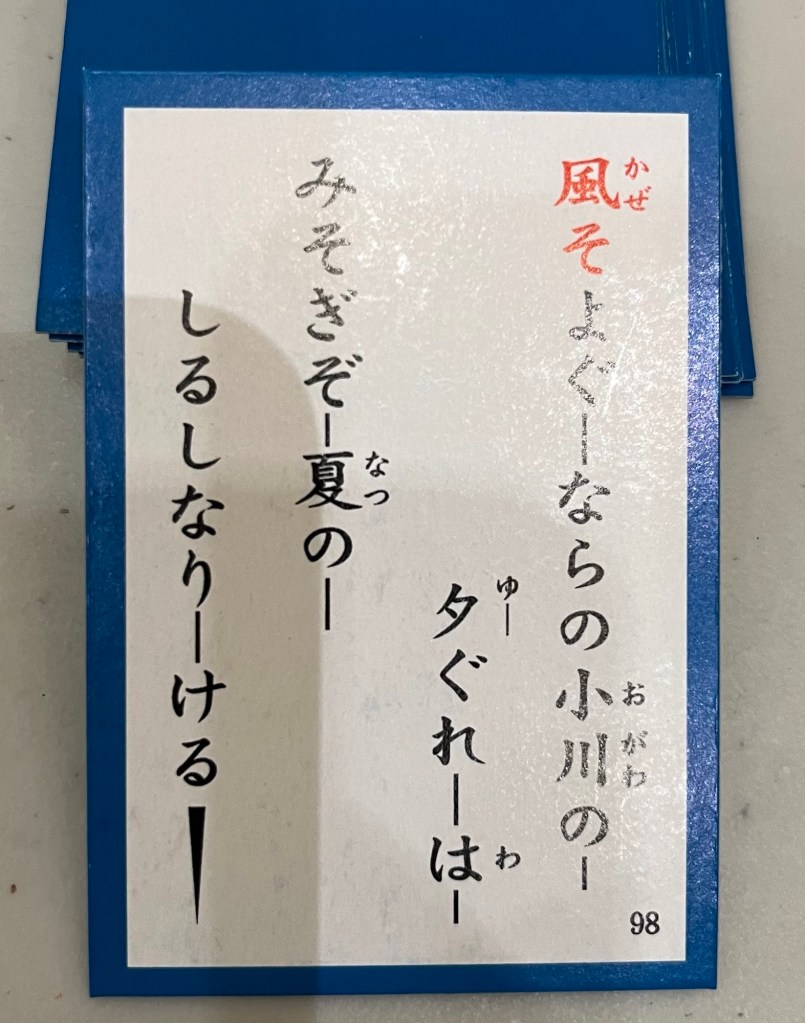 風そよぐーならの小川のー
かぜ
おがわ
夕ぐれーはー
ゆー
わ
みそぎぞー夏のー
なつ
しるしなりーけるー
98